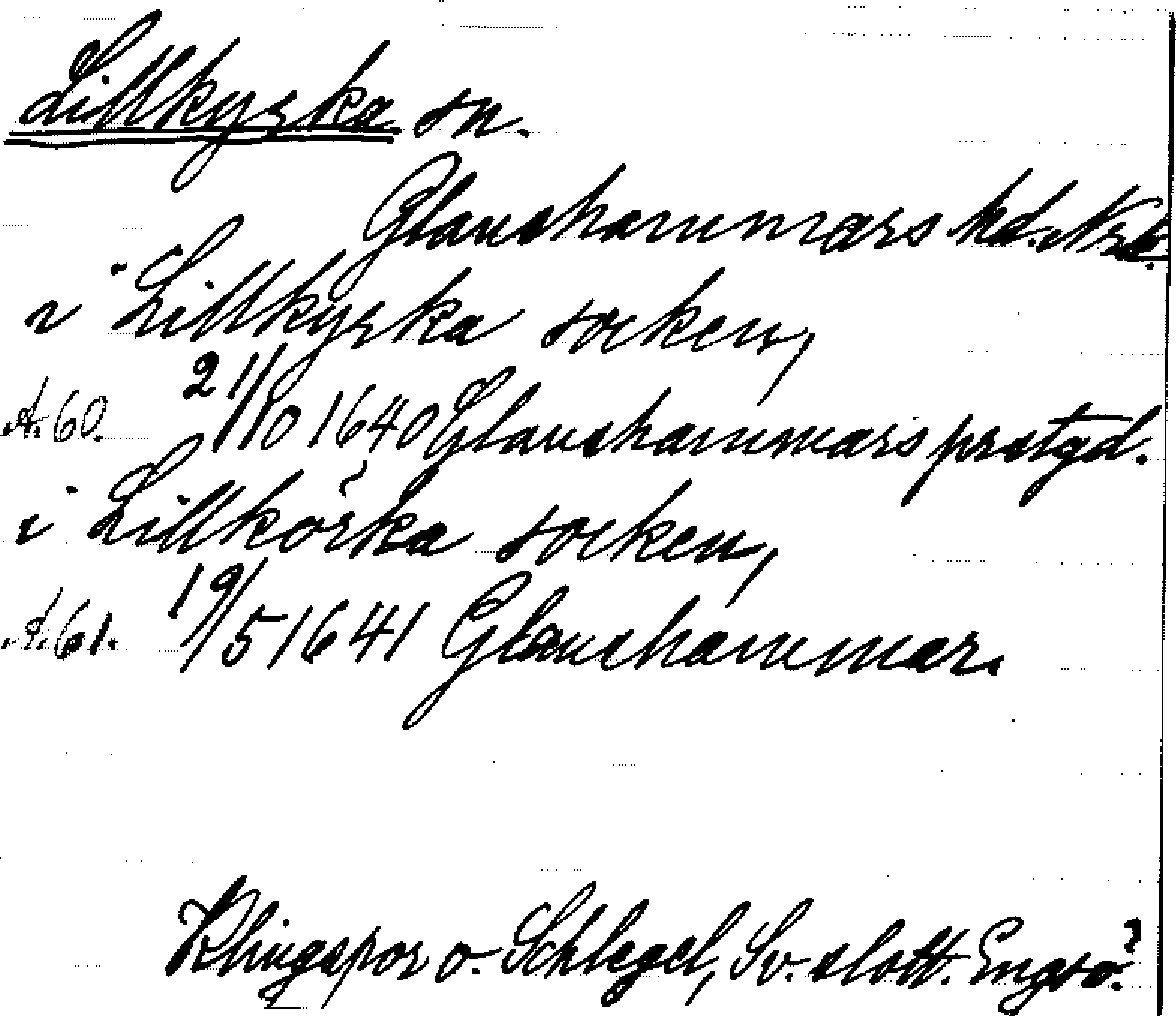 Lillkyrka sn.
Glanshammars hd. Nrk.
i Lillkyrka socken,
A. 60. 21/10 1640 Glanshammars prstgd.
i Lillkörka socken,
A. 61. 19/5 1641 Glanshammar.
Klingspor o. Schlegel, Sv. slott. Engsö.